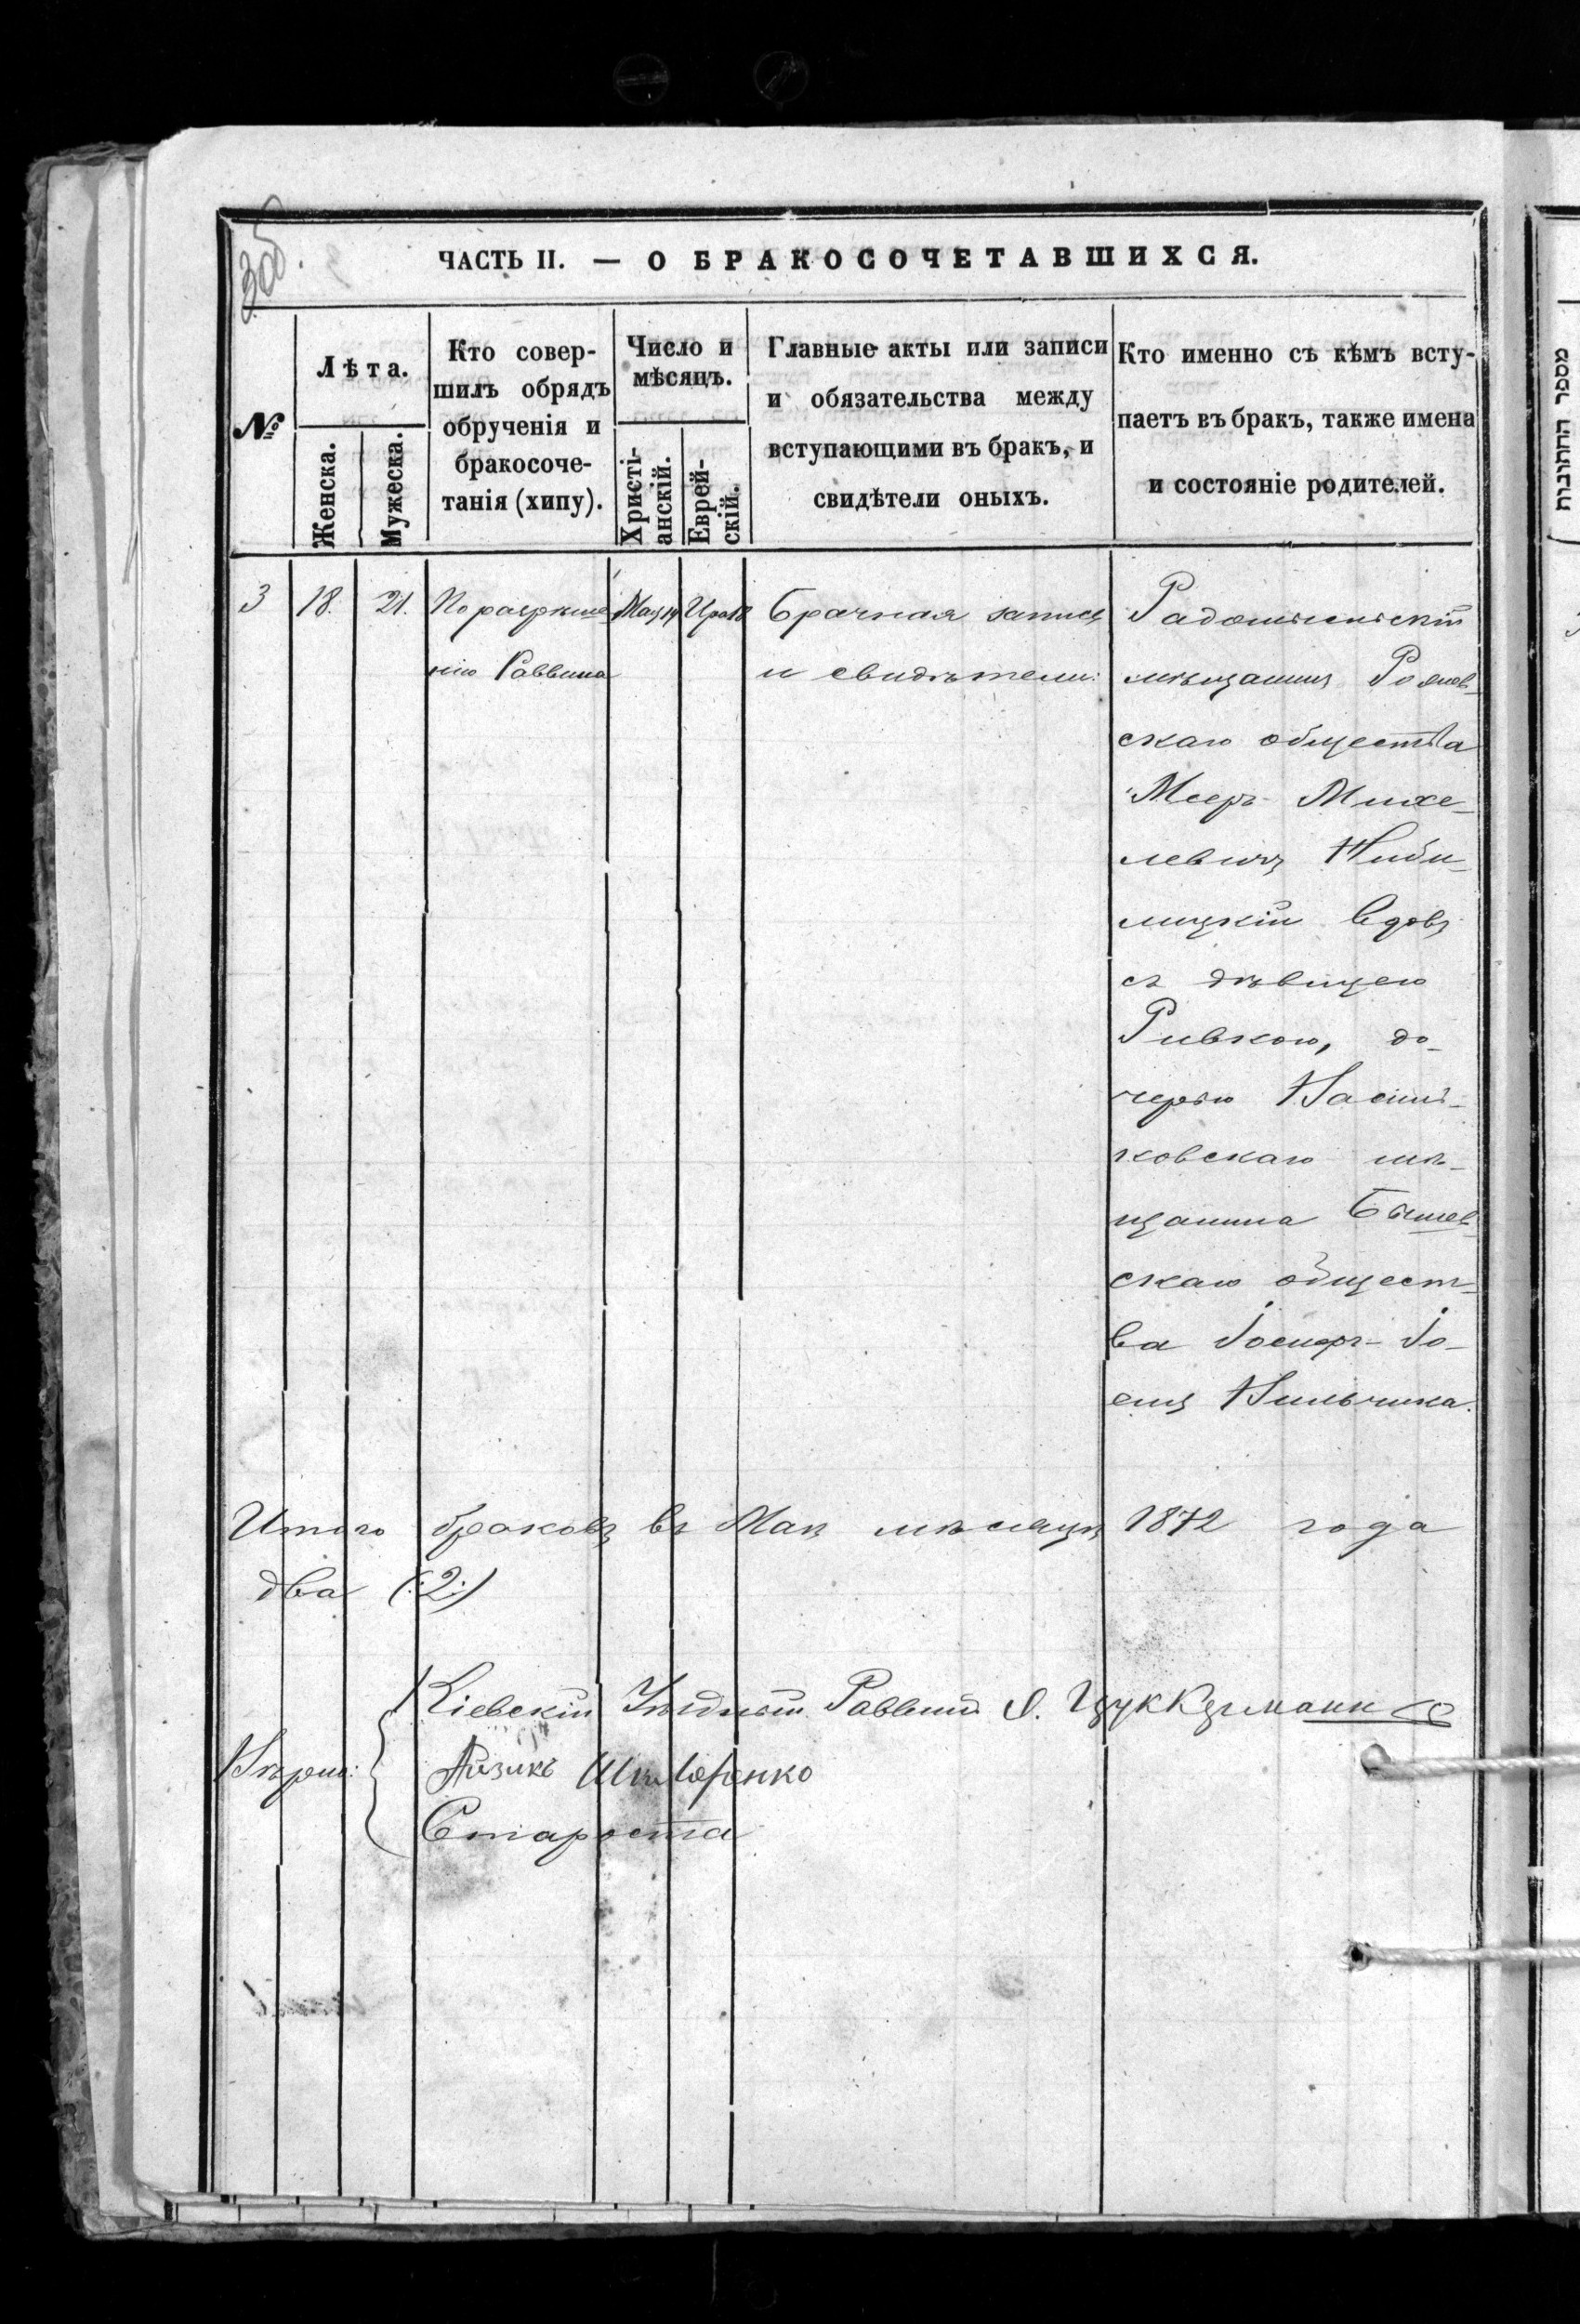 ЧАСТЬ II. — О БРАКОСОЧЕТАВШИХСЯ.
№
Лѣта.
Женска.
Мужеска.
Кто совер-
шилъ обрядъ
обрученія и
бракосоче-
танія (хипу).
Число и
мѣсяцъ.
Христі-
анскій.
Еврей-
скій.
Главные акты или записи
и обязательства между
вступающими въ бракъ, и
свидѣтели оныхъ.
Кто именно съ кѣмъ всту-
паетъ въ бракъ, также имена
и состояніе родителей.
מספר החתונות
3 18. 21. По разрѣше-
нію Раввина
Мая 14 Ира 18
Брачная запись
и свидѣтели:
Радомысльскій
мѣщанинъ
скаго общества
Мееръ Михе-
левичъ
вдовъ
съ дѣвицею
Ривкою, до-
черью Василь-
ковскаго мѣ-
щанина Бышев-
скаго общест-
ва Іосифъ-Іо-
Нильчика.
Итого браковъ въ Маѣ мѣсяцѣ 1872 года
два (:2:)
Кіевскій Уѣздный Раввинъ Цуккерманъ
Вѣрно: Айзикъ
Староста